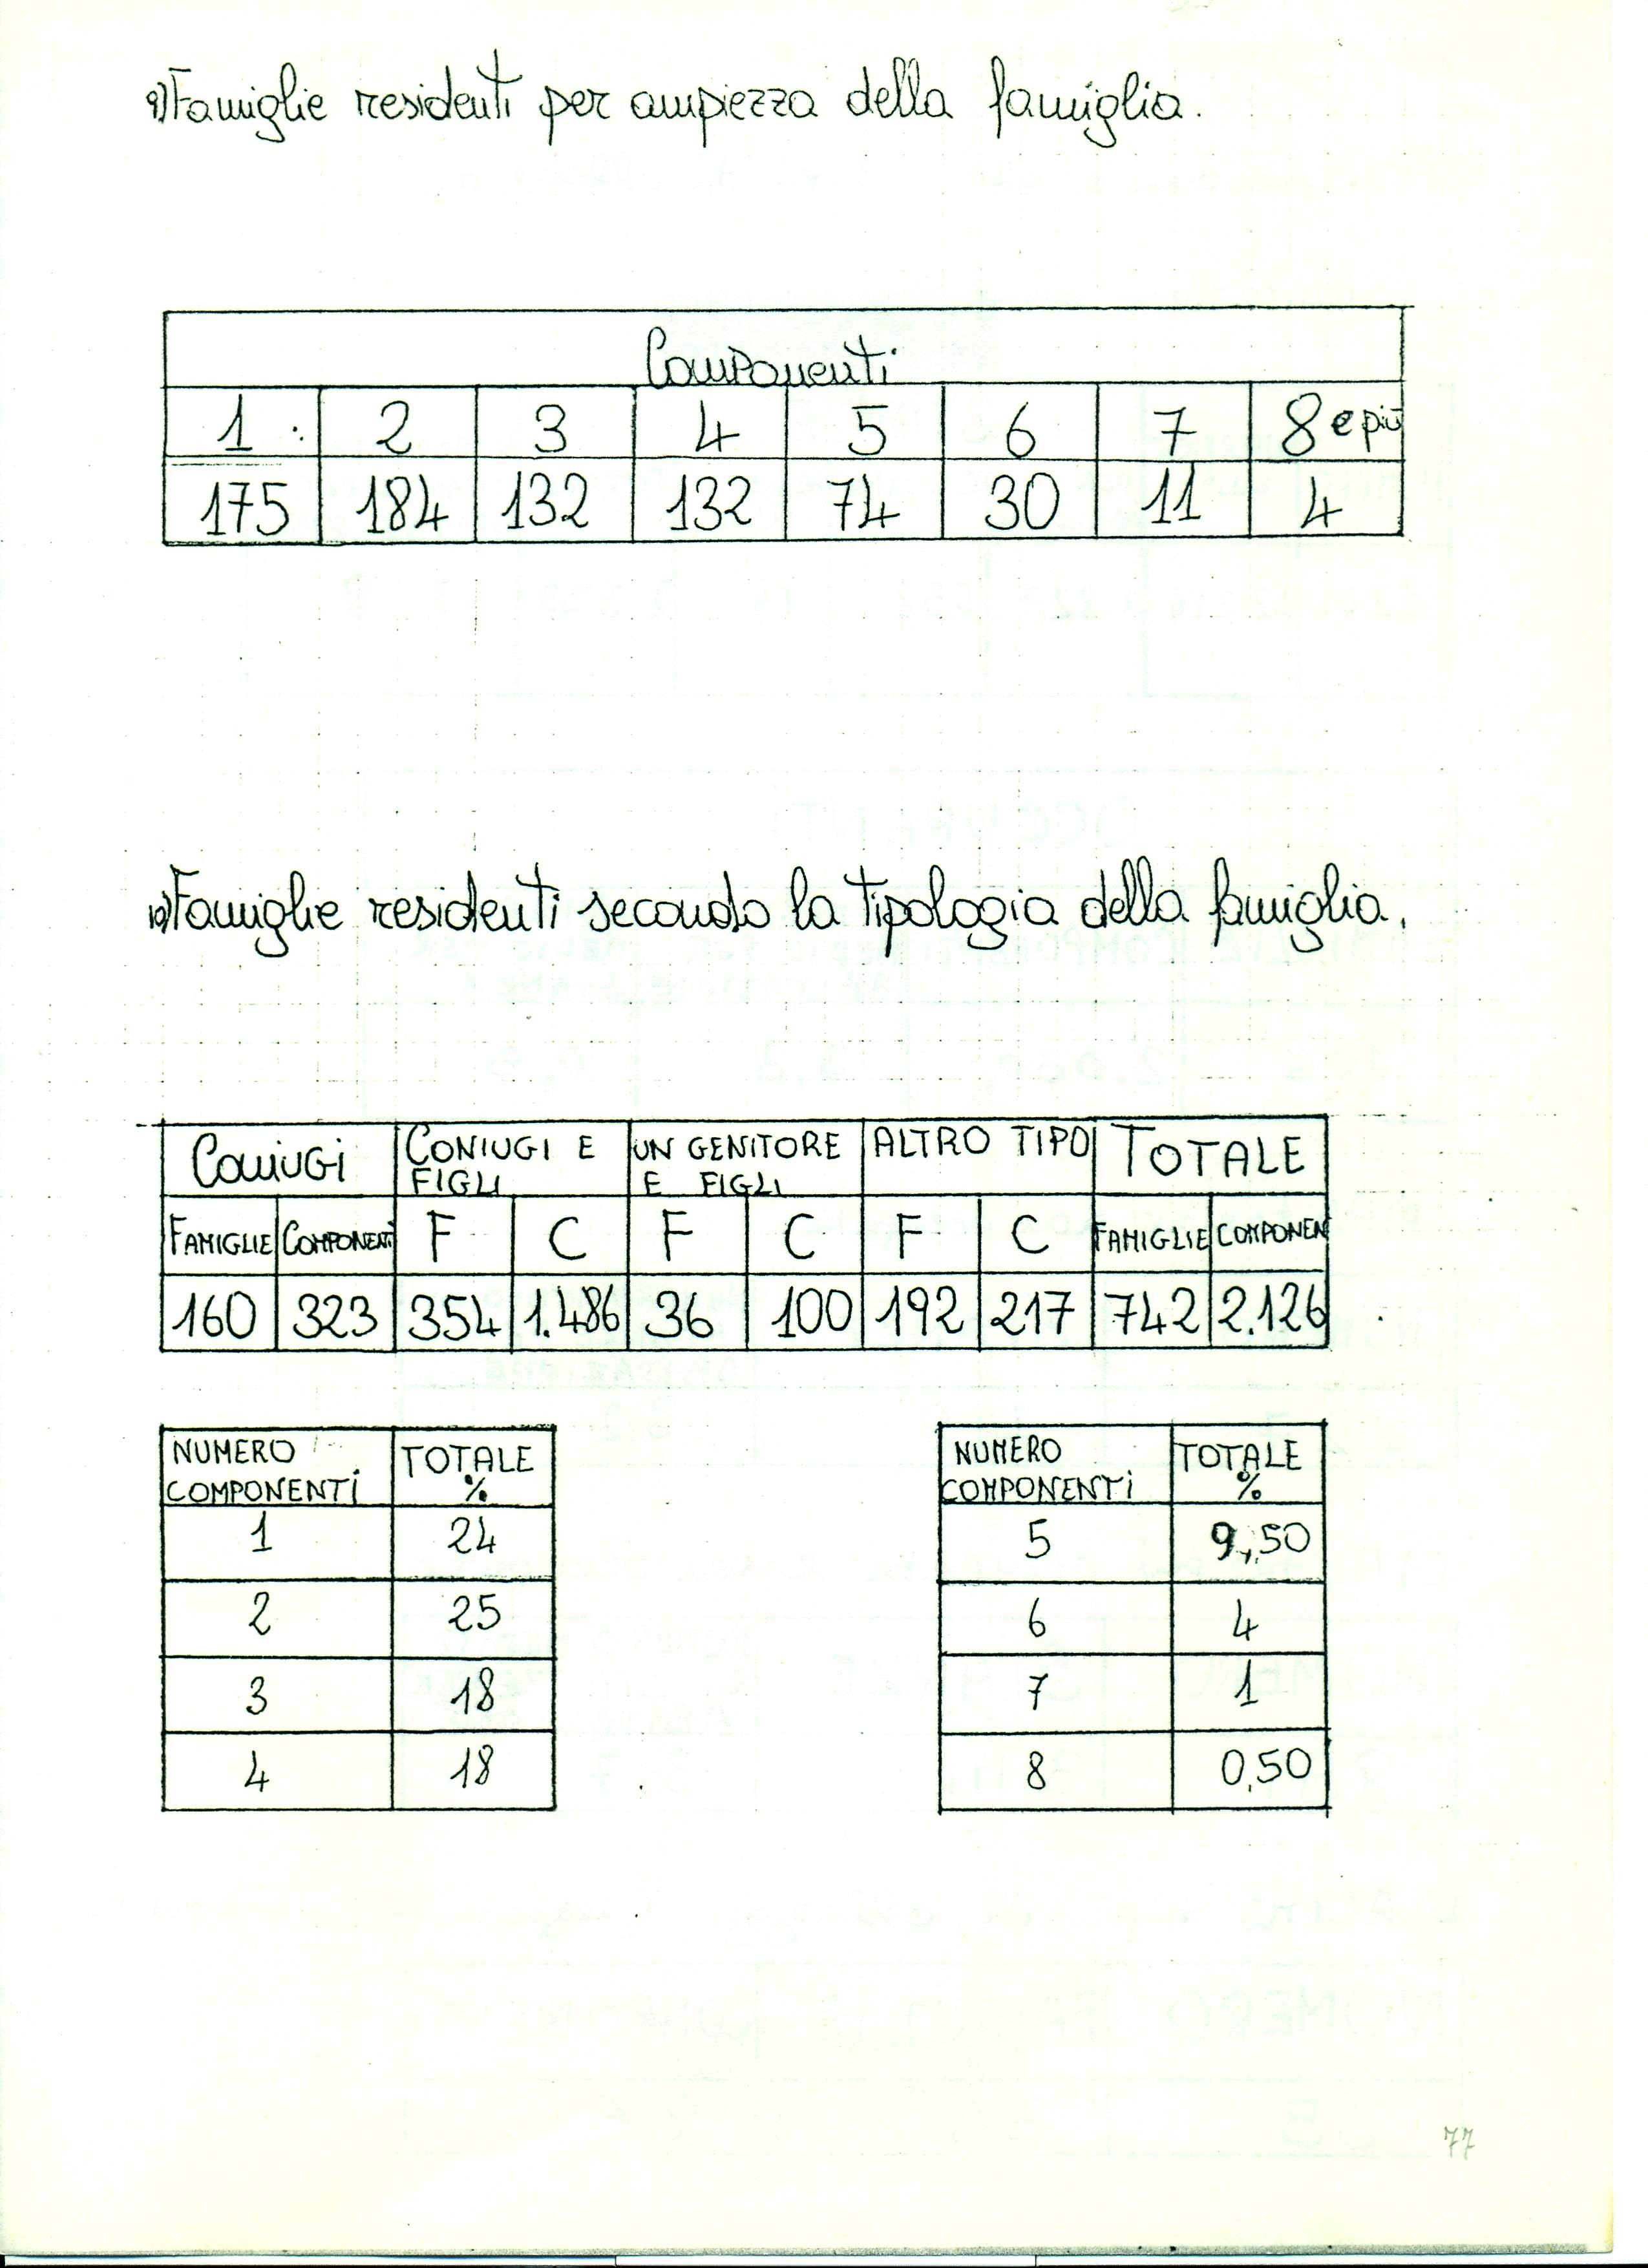 9) Famiglie residenti per ampiezza della famiglia.
Componenti
1 2 3 4 5 6 7 8 e più
175 184 132 132 74 30 11 4
10) Famiglie residenti secondo la tipologia della famiglia.
CONIUGI CONIUGI E FIGLI UN GENITORE E FIGLI ALTRO TIPO TOTALE
FAMIGLIE COMPONENTI F C F C F C FAMIGLIE COMPONEN
160 323 354 1.486 36 100 192 217 742 2.126
NUMERO COMPONENTI TOTALE %
1 24
2 25
3 18
4 18
NUMERO COMPONENTI TOTALE %
5 9,50
6 4
7 1
8 0,50
77